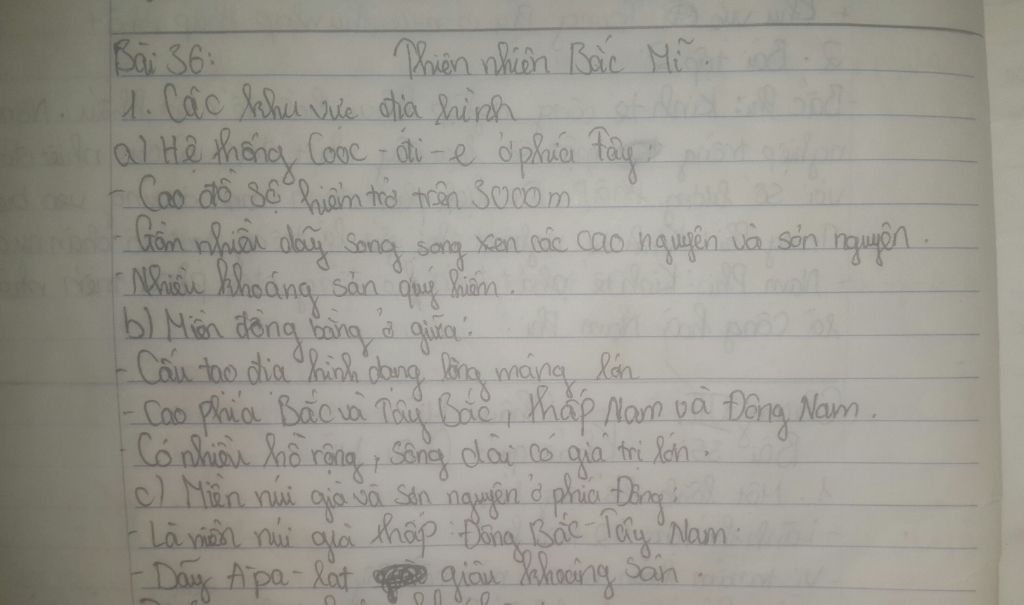 Bài 36: Thiên nhiên Bắc Mĩ.
1. Các khu vực địa hình
a) Hệ thống Cooc-đi-e ở phía Tây:
- Cao đồ sộ, hiểm trở trên 3000m
- Gồm nhiều dãy song song xen các cao nguyên và sơn nguyên.
- Nhiều khoáng sản quý hiếm.
b) Miền đồng bằng ở giữa:
- Cấu tạo địa hình dạng lòng máng lớn
- Cao phía Bắc và Tây Bắc, thấp Nam và Đông Nam.
- Có nhiều hồ rộng, sông dài có giá trị lớn.
c) Miền núi già và sơn nguyên ở phía Đông:
- Là miền núi già thấp: Đông Bắc-Tây Nam
- Dãy A-pa-lat giàu khoáng sản.